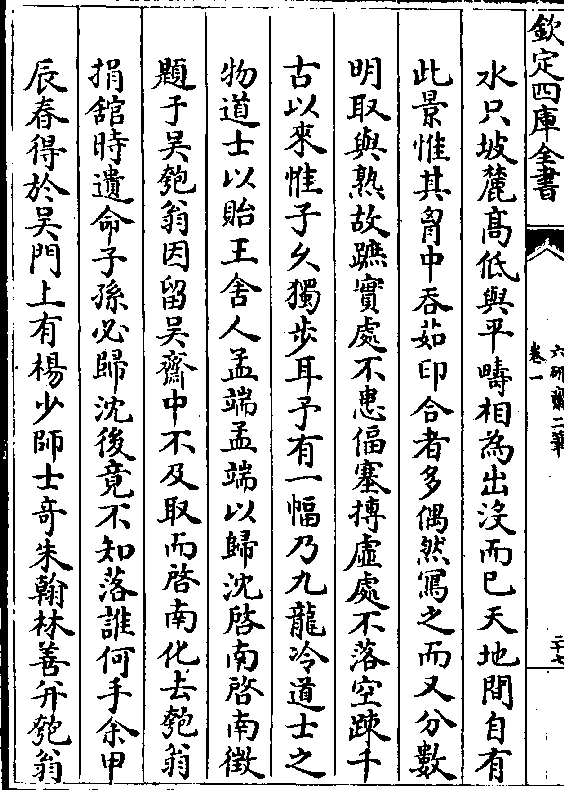 欽定四庫全書
六研齋二筆
卷一
二十七
水只坡麓高低與平疇相為出沒而已天地間自有
此景惟其胷中吞茹印合者多偶然寫之而又分數
明取與熟故蹠實處不患偪塞摶虛處不落空踈千
古以來惟子久獨步耳予有一幅乃九龍冷道士之
物道士以貽王舍人孟端孟端以歸沈啓南啓南徵
題于吴匏翁因留吴齋中不及取而啓南化去匏翁
捐舘時遺命子孫必歸沈後竟不知落誰何手余甲
辰春得於吴門上有楊少師士竒朱翰林善并匏翁